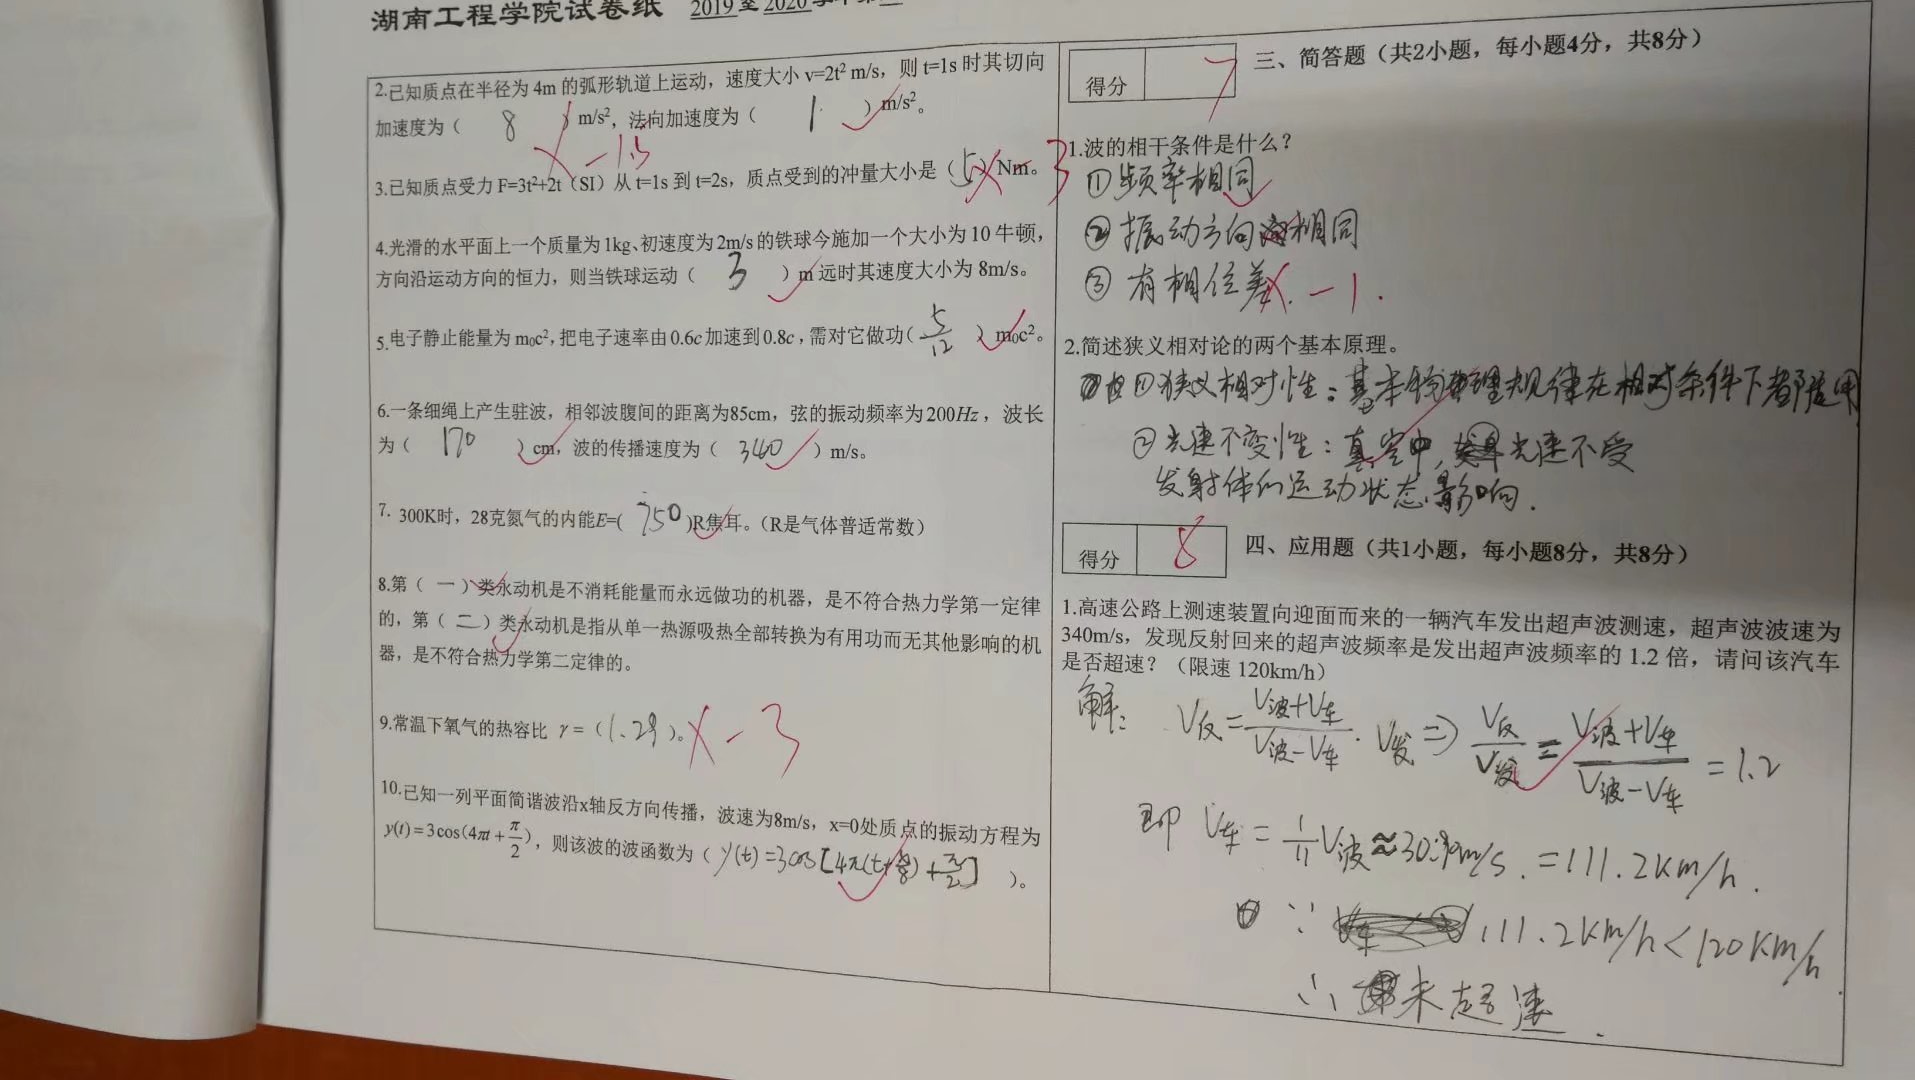 湖南工程学院试卷纸 2019至2020学年第
2.已知质点在半径为4m的弧形轨道上运动，速度大小v=2t² m/s，则t=1s时其切向
加速度为（ 8 ）m/s²，法向加速度为（ 1 ）m/s²。
-1.5
3.已知质点受力F=3t²+2t（SI）从t=1s到t=2s，质点受到的冲量大小是（ 5 ）Nm。
-3
4.光滑的水平面上一个质量为1kg、初速度为2m/s的铁球今施加一个大小为10牛顿，
方向沿运动方向的恒力，则当铁球运动（ 3 ）m远时其速度大小为8m/s。
5.电子静止能量为m₀c²,把电子速率由0.6c加速到0.8c,需对它做功( 5/12 )m₀c²。
6.一条细绳上产生驻波，相邻波腹间的距离为85cm，弦的振动频率为200Hz，波长
为（ 170 ）cm，波的传播速度为（ 340 ）m/s。
7. 300K时，28克氮气的内能E=( 750 )R焦耳。（R是气体普适常数）
8.第（ 一 ）类永动机是不消耗能量而永远做功的机器，是不符合热力学第一定律
的，第（ 二 ）类永动机是指从单一热源吸热全部转换为有用功而无其他影响的机
器，是不符合热力学第二定律的。
9.常温下氧气的热容比 γ=（1.29）。
-3
10.已知一列平面简谐波沿x轴反方向传播，波速为8m/s，x=0处质点的振动方程为
y(t)=3cos(4πt+π/2)，则该波的波函数为（ y(t)=3cos[4π(t+x/8)+π/2] ）。
得分 7
三、简答题（共2小题，每小题4分，共8分）
1.波的相干条件是什么？
①频率相同
②振动方向相同
③有相位差
-1.
2.简述狭义相对论的两个基本原理。
①狭义相对性：基本物理规律在相对条件下都适用
②光速不变性：真空中,光速不受
发射体们运动状态影响.
得分 8
四、应用题（共1小题，每小题8分，共8分）
1.高速公路上测速装置向迎面而来的一辆汽车发出超声波测速，超声波波速为
340m/s，发现反射回来的超声波频率是发出超声波频率的1.2倍，请问该汽车
是否超速？（限速120km/h）
解: V反=(V波+V车)/(V波-V车)·V发⇒V反/V发=(V波+V车)/(V波-V车)=1.2
即 V车=1/11V波≈30.9m/s.=111.2km/h.
∵ 111.2km/h<120km/h
∴ 未超速.